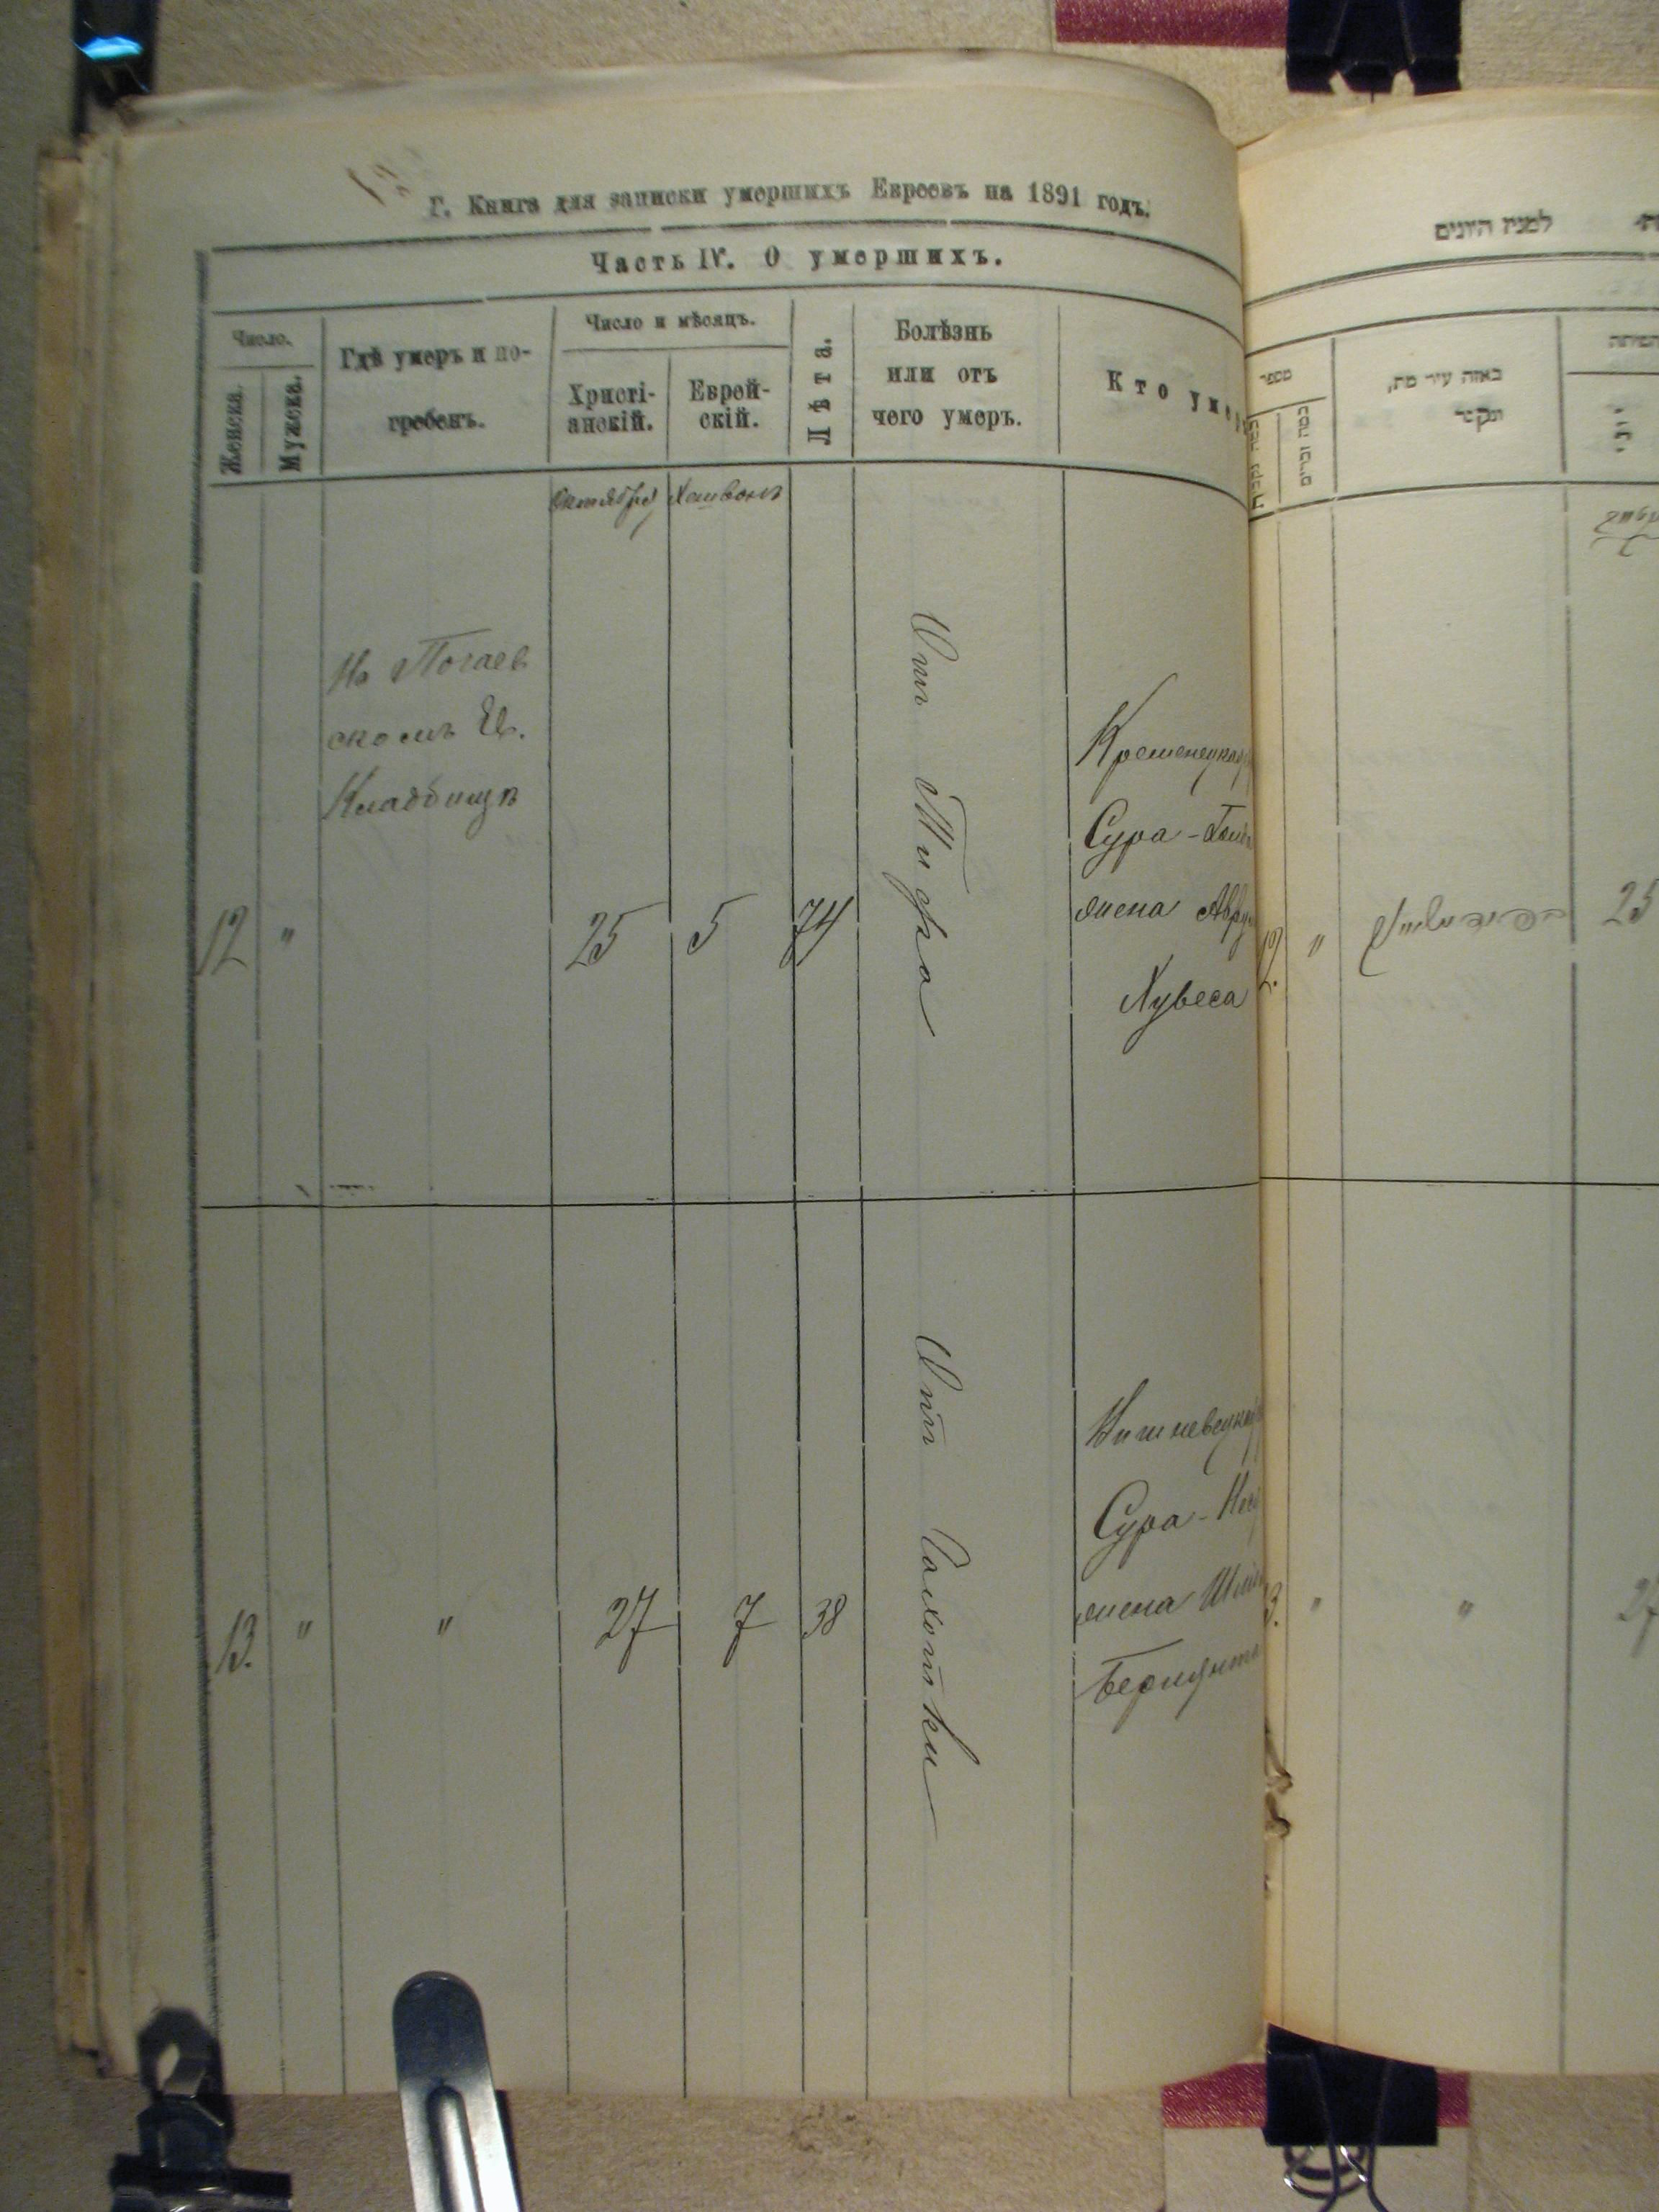 Г. Книга для записки умершихъ Евреевъ на 1891 годъ.
Часть IV. О умершихъ.
Число.
Женска.
Мужска.
Гдѣ умеръ и по-
гребенъ.
Число и мѣсяцъ.
Христі-
анскій.
Еврей-
скій.
Лѣта.
Болѣзнь
или отъ
чего умеръ.
Кто умер
Октября
Хешвонъ
На Почаев
скомъ Ев.
Кладбищѣ
12
"
25
5
74
Отъ Тифа
Кременецкая
Сура-
жена
Хувеса
13.
"
"
27
7
38
Отъ Чахотки
Вишневецкая
Сура-
жена
למנין היונים
מספר
באיזה עיר מת,
ונקבר
12.
"
25
3.
"
"
27